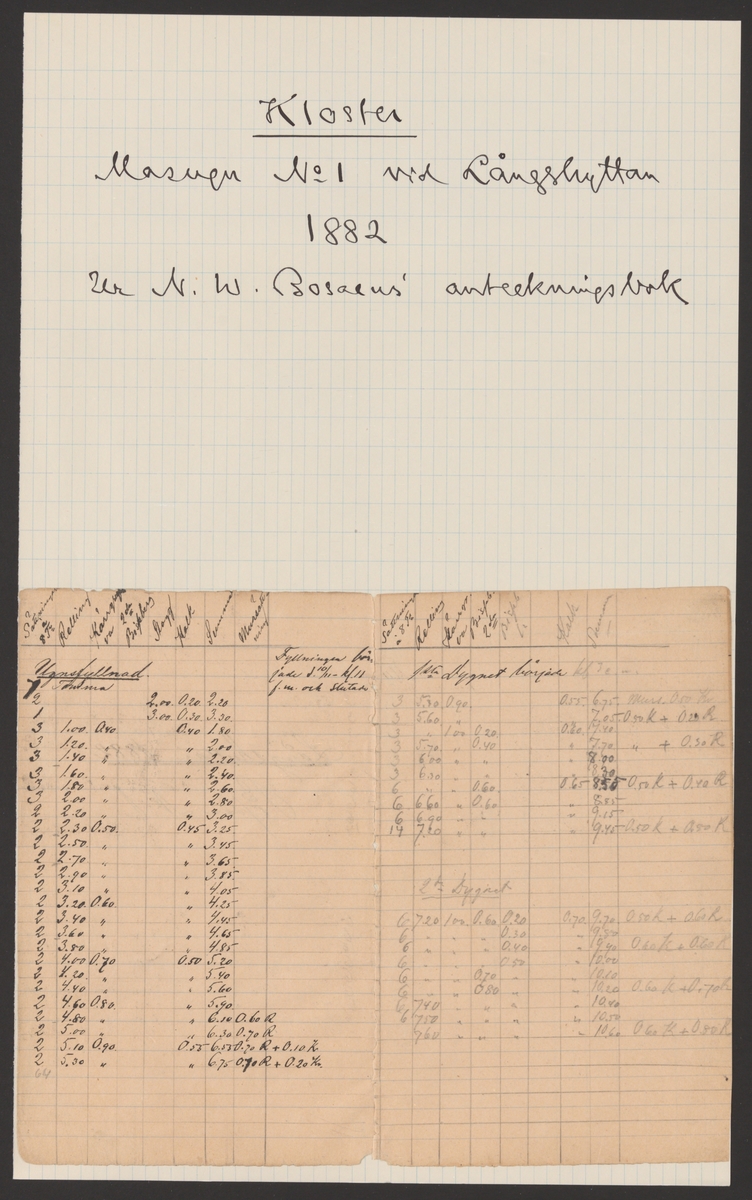 Kloster
Masugn No 1 vid Långshyttan
1882
Ur N. W. Bosaeus' anteckningsbok
Relling Slagg Kalk Summa
Ugnsfyllnad. Fyllningen bör-
jade d. 10/11 kl. 11
f.m. och slutade
2 2.00 0.20 2.20
1 3.00 0.30 3.30
3 1.00 0.40 0.40 1.80
3 1.20 „ „ 2.00
3 1.40 „ „ 2.20
3 1.60 „ „ 2.40
3 1.80 „ „ 2.60
3 2.00 „ „ 2.80
2 2.20 „ „ 3.00
2 2.30 0.50 0.45 3.25
2 2.50 „ „ 3.45
2 2.70 „ „ 3.65
2 2.90 „ „ 3.85
2 3.10 „ „ 4.05
2 3.20 0.60 „ 4.25
2 3.40 „ „ 4.45
2 3.60 „ „ 4.65
2 3.80 „ „ 4.85
2 4.00 0.70 0.50 5.20
2 4.20 „ „ 5.40
2 4.40 „ „ 5.60
2 4.60 0.80 „ 5.90
2 4.80 „ „ 6.10 0.60 R
2 5.00 „ „ 6.30 0.70 R
2 5.10 0.90 0.55 6.55 0.70 R + 0.10 K
2 5.30 „ „ 6.75 0.70 R + 0.20 K
64
Relling Kalk Summa
1sta Dygnet började
3 5.30 0.90 0.55 6.75 0.50 K
3 5.60 „ „ 7.05 0.50 R + 0.20 R
3 „ 1.00 0.20 0.60 7.40
3 5.70 „ 0.40 „ 7.70 „ + 0.30 R
3 6.00 „ „ „ 8.00
3 6.30 „ „ „ 8.30
6 „ „ 0.60 0.65 8.55 0.50 R + 0.40 R
6 6.60 „ 0.60 „ 8.85
6 6.90 „ „ „ 9.15
14 7.20 „ „ „ 9.45 0.50 R + 0.50 R
2dra Dygnet
6 7.20 1.00 0.60 0.20 0.70 9.70 0.50 R + 0.60 R
6 „ „ „ 0.30 „ 9.80
6 „ „ „ 0.40 „ 9.90 0.60 R + 0.60 R
6 „ „ „ 0.50 „ 10.00
6 „ „ 0.70 „ „ 10.10
6 „ „ 0.80 „ „ 10.20 0.60 R + 0.70 R
6 7.40 „ „ „ „ 10.40
6 7.50 „ „ „ „ 10.50
7.60 „ „ „ „ 10.60 0.60 R + 0.80 R